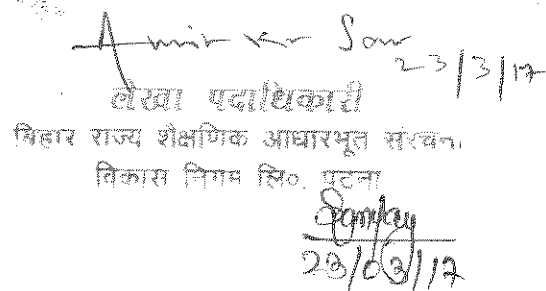 Amit Kr
23/3/17
लेखा पदाधिकारी
बिहार राज्य शैक्षणिक आधारभूत संरचना
विकास निगम लि०, पटना
Sanjay
23/03/17